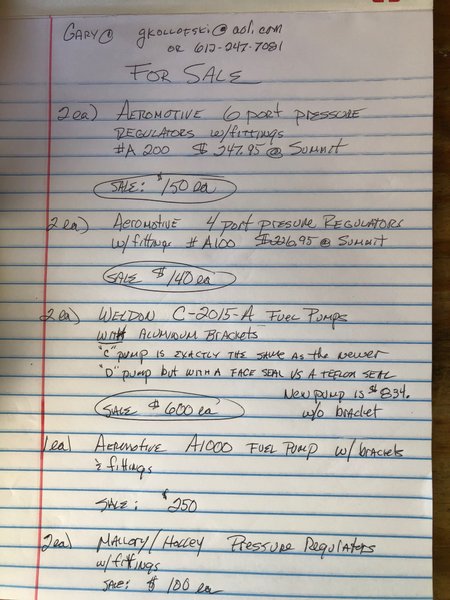 GARY@ gkollofski@aol.com
OR 612-247-7081
FOR SALE
2 ea) AEROMOTIVE 6 port pressure
REGULATORS w/fittings
#A 200 $247.95 @ Summit
SALE: $150 ea
2 ea) AEROMOTIVE 4 port pressure REGULATORS
w/fittings # A100 $226.95 @ Summit
SALE $140 ea
2 ea) WELDON C-2015-A FUEL PUMPS
WITH ALUMINUM BRACKETS
"C" pump IS EXACTLY THE SAME AS the NEWER
"D" pump but WITH A FACE SEAL VS A TEFLON SEAL
NEW pump IS $834.
w/o bracket
SALE $600 ea
1 ea) AEROMOTIVE A1000 FUEL PUMP w/ brackets
& fittings
SALE: $250
2 ea) MALLORY/HOLLEY Pressure Regulators
w/fittings
SALE: $100 ea